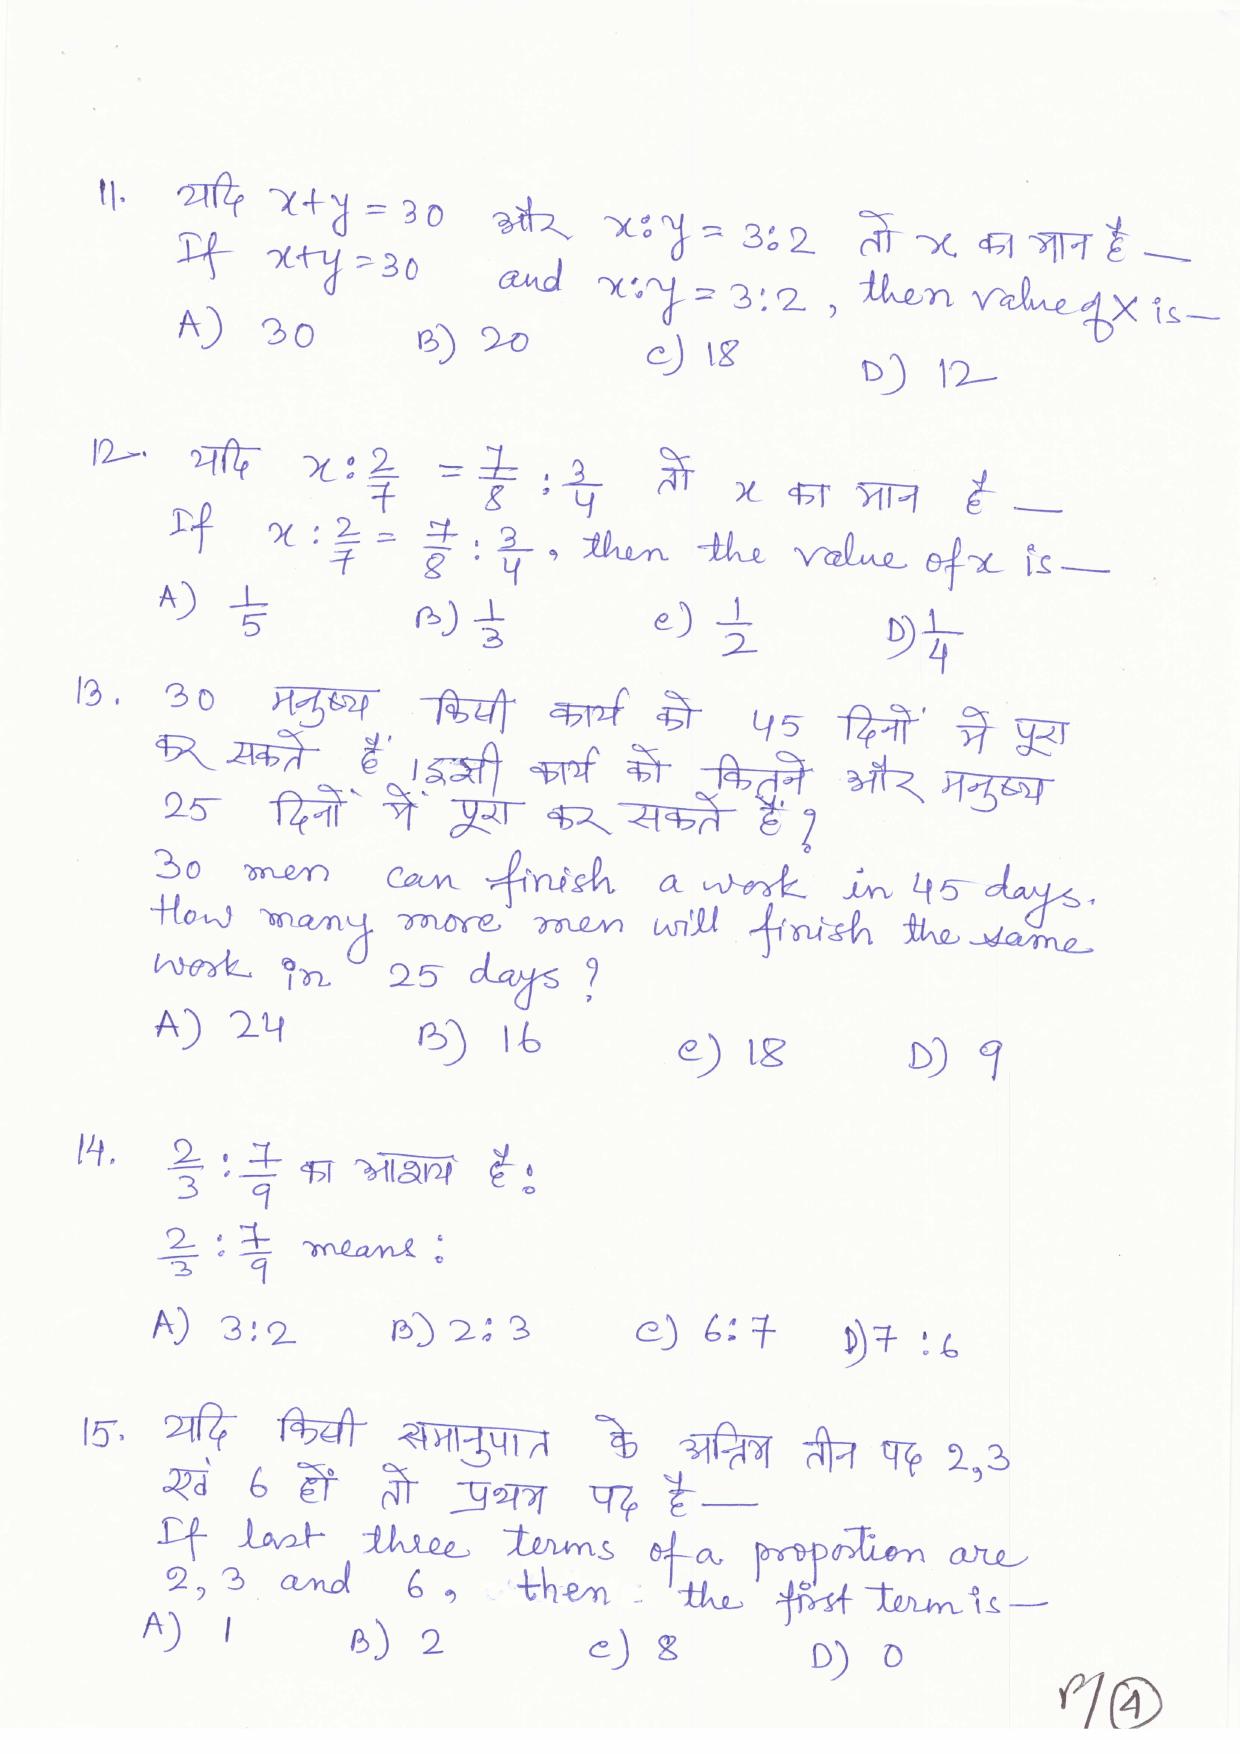 11. यदि x+y=30 और x:y=3:2 तो x का मान है —
If x+y=30 and x:y=3:2, then value of X is—
A) 30 B) 20 C) 18 D) 12
12. यदि x:2/7 = 7/8 : 3/4 तो x का मान है —
If x : 2/7 = 7/8 : 3/4, then the value of x is—
A) 1/5 B) 1/3 C) 1/2 D) 1/4
13. 30 मनुष्य किसी कार्य को 45 दिनों में पूरा
कर सकते हैं। इसी कार्य को कितने और मनुष्य
25 दिनों में पूरा कर सकते हैं?
30 men can finish a work in 45 days.
How many more men will finish the same
work in 25 days?
A) 24 B) 16 C) 18 D) 9
14. 2/3 : 7/9 का आशय है:
2/3 : 7/9 means:
A) 3:2 B) 2:3 C) 6:7 D) 7:6
15. यदि किसी समानुपात के अन्तिम तीन पद 2,3
एवं 6 हों तो प्रथम पद है —
If last three terms of a proportion are
2, 3 and 6, then the first term is—
A) 1 B) 2 C) 8 D) 0
P/4